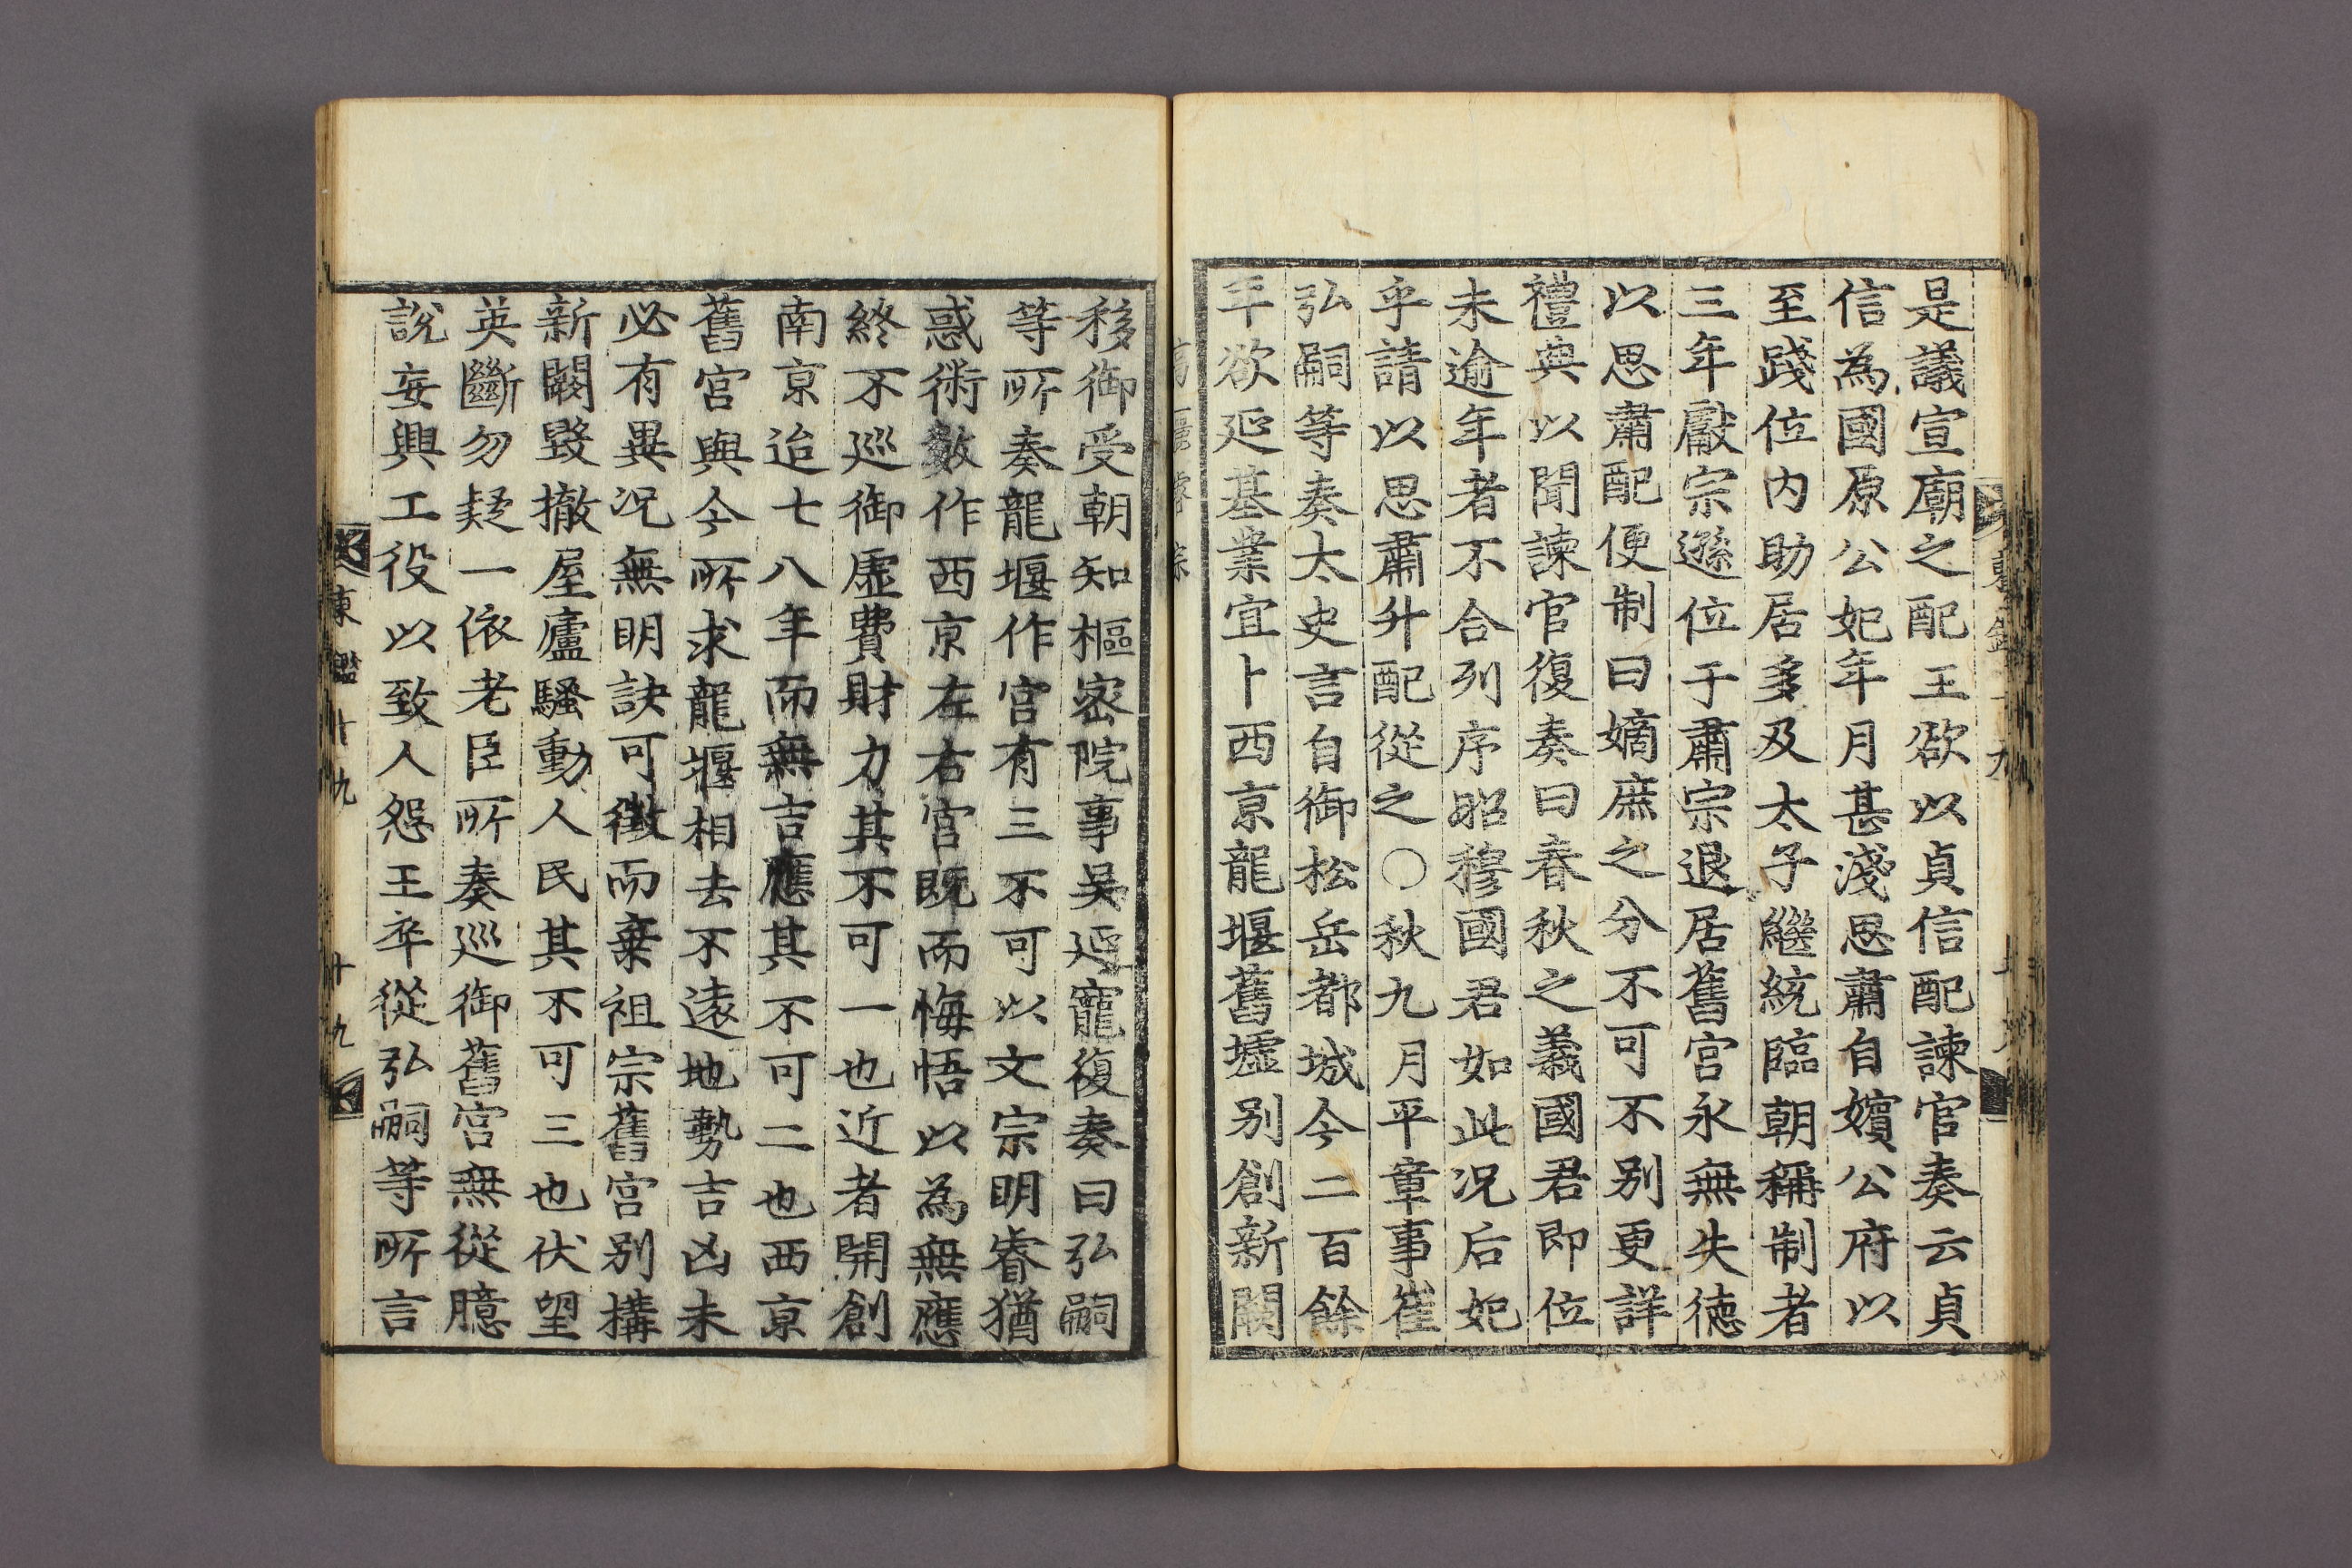 是議宣廟之配王欲以貞信配諫官奏云貞
信為國原公妃年月甚淺思肅自嬪公府以
至踐位內助居多及太子繼統臨朝稱制者
三年獻宗遜位于肅宗退居舊宮永無失德
以思肅配便制曰嫡庶之分不可不别更詳
禮典以聞諫官復奏曰春秋之義國君即位
未逾年者不合列序昭穆國君如此况后妃
乎請以思肅升配從之○秋九月平章事崔
弘嗣等奏太史言自御松岳都城今二百餘
年欲延基業宜卜西京龍堰舊墟别創新闕
移御受朝知樞密院事吳延寵復奏曰弘嗣
等所奏龍堰作宮有三不可以文宗明睿猶
惑術數作西京左右宮旣而悔悟以為無應
終不巡御虛費財力其不可一也近者開創
南京迨七八年而無吉應其不可二也西京
舊宮與今所求龍堰相去不遠地勢吉凶未
必有異况無明訣可徵而棄祖宗舊宮别構
新闕毀撤屋廬騷動人民其不可三也伏望
英斷勿疑一依老臣所奏巡御舊宮無從臆
說妄興工役以致人怨王卒從弘嗣等所言
東鑑十九
十九